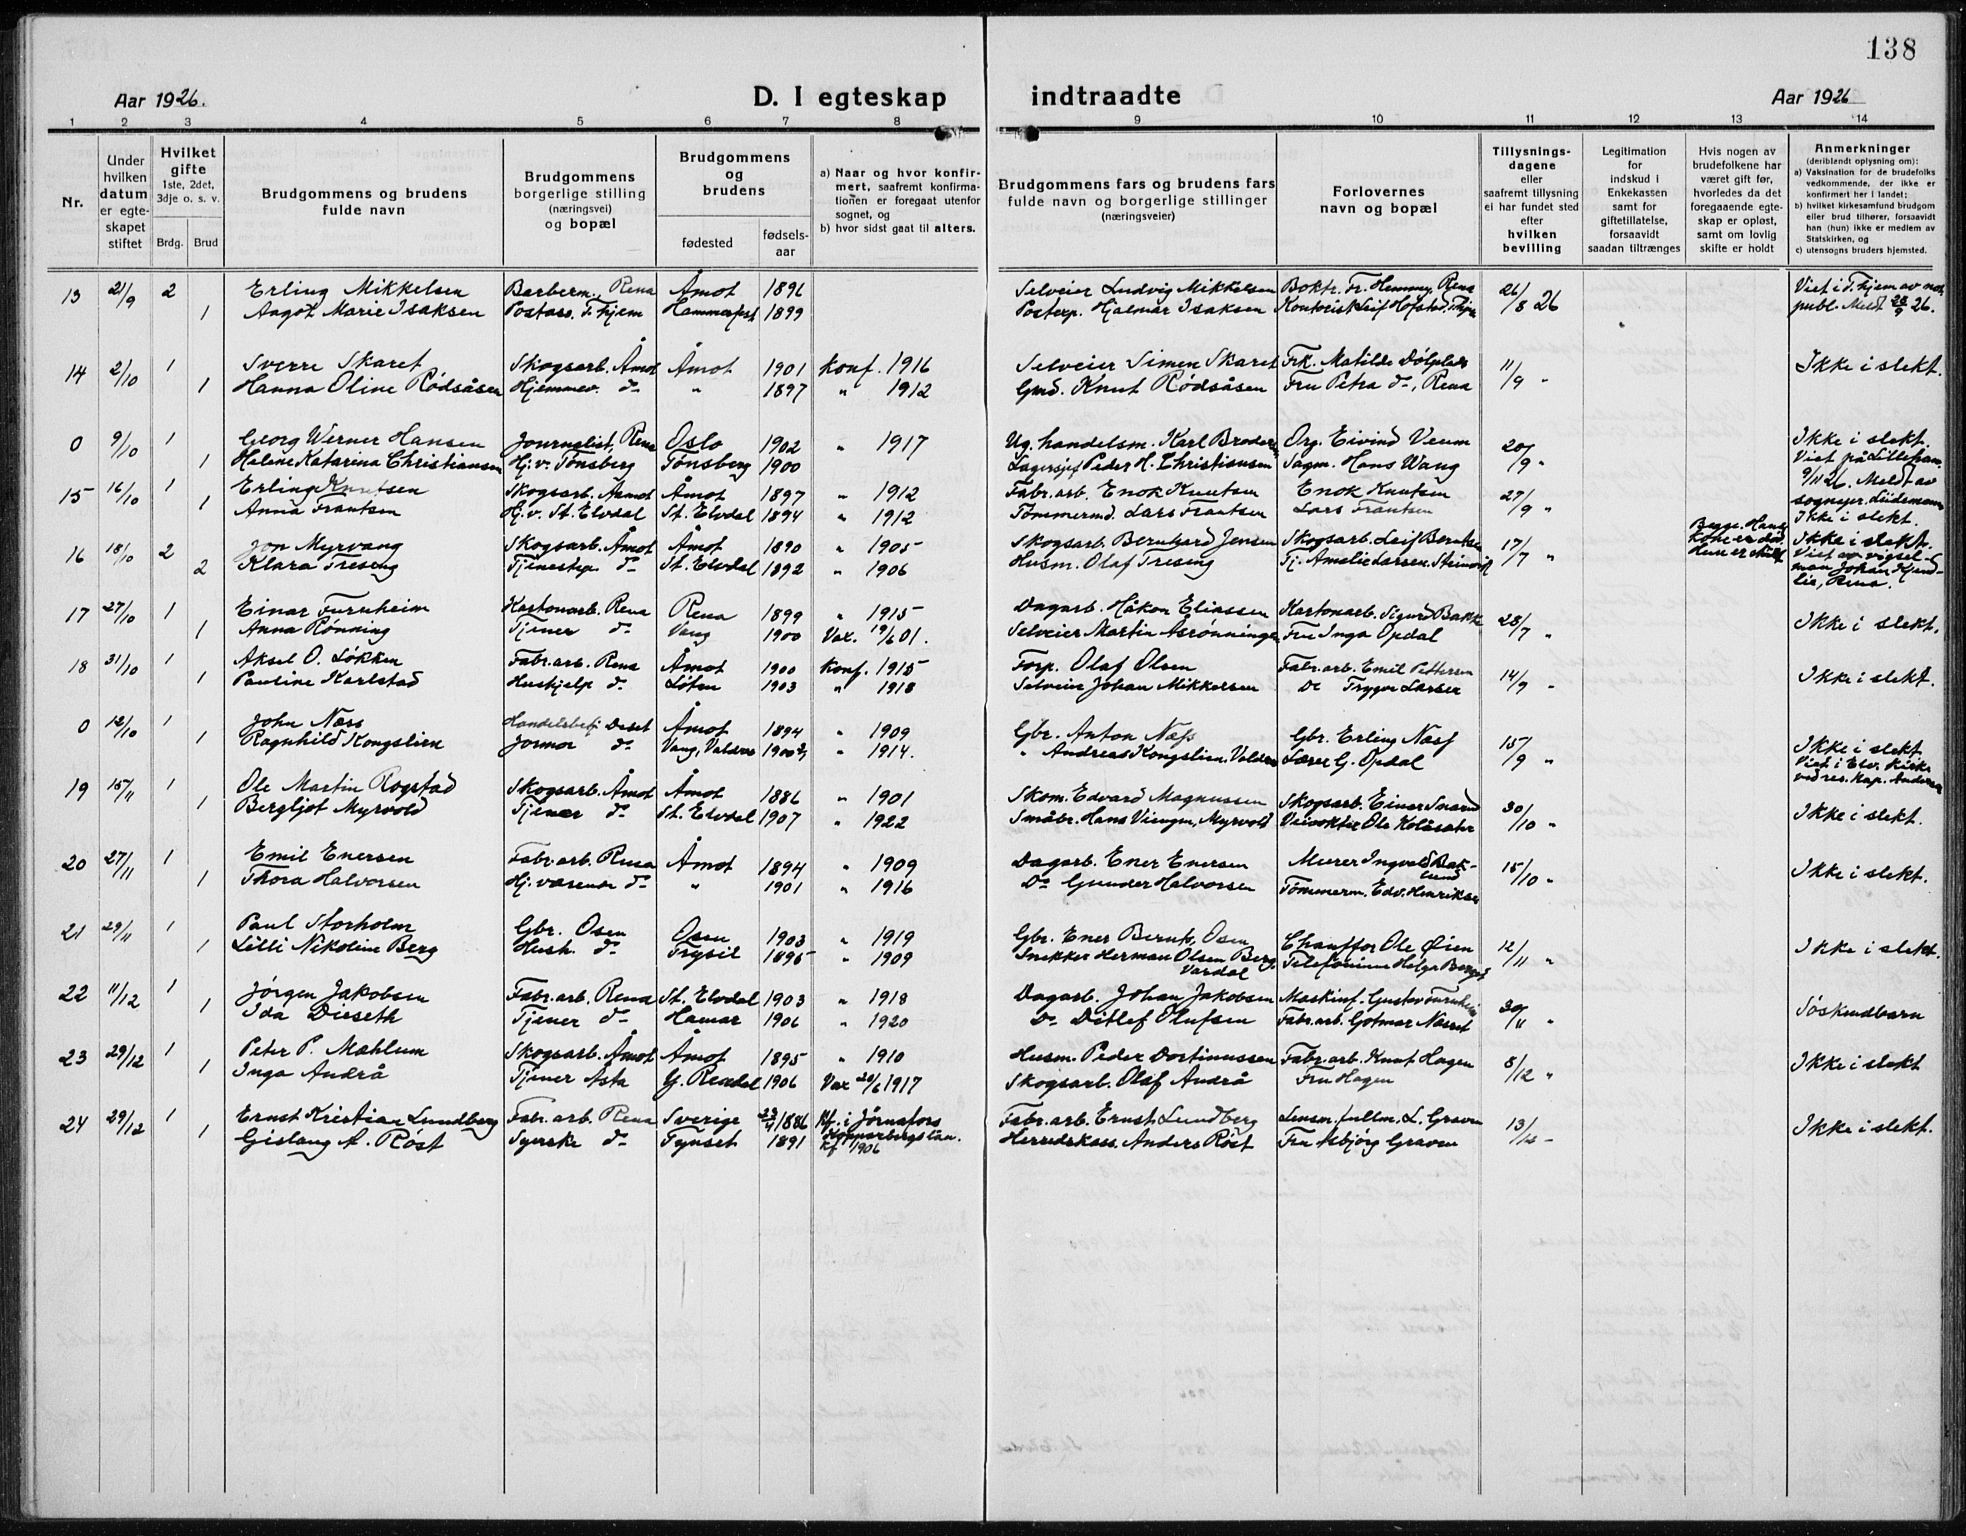 138
Aar 1926.
D. I egteskap indtraadte
Aar 1926
1 2 3 4 5 6 7 8 9 10 11 12 13 14
Nr.
Under hvilken datum er egteskapet stiftet
Hvilket gifte 1ste, 2det, 3dje o. s. v.
Brdg. Brud
Brudgommens og brudens fulde navn
Brudgommens borgerlige stilling (næringsvei) og bopæl
Brudgommens og brudens
fødested
fødselsaar
a) Naar og hvor konfirmert, saafremt konfirmationen er foregaat utenfor sognet, og
b) hvor sidst gaat til alters.
Brudgommens fars og brudens fars fulde navn og borgerlige stillinger (næringsveier)
Forlovernes navn og bopæl
Tillysningsdagene eller saafremt tillysning ei har fundet sted efter hvilken bevilling
Legitimation for indskud i Enkekassen samt for giftetillatelse, forsaavidt saadan tiltrænges
Hvis nogen av brudefolkene har været gift før, hvorledes da det foregaaende egteskap er opløst, samt om lovlig skifte er holdt
Anmerkninger (deriblandt oplysning om):
a) Vaksination for de brudefolks vedkommende, der ikke er konfirmert her i landet;
b) hvilket kirkesamfund brudgom eller brud tilhører, forsaavidt han (hun) ikke er medlem av Statskirken, og
c) utensogns bruders hjemsted.
13 21/9 2 Erling Mikkelsen Barberm. Rena Åmot 1896 Selveier Ludvig Mikkelsen Boktr. Fr. Hemmy, Rena 26/8 26 Viet i T.hjem av not.
1 Aagot Marie Isaksen Postass. T.hjem Hammerfest 1899 Postexp. Hjalmar Isaksen Kontorist Leif Hofstad, T.hjem publ. Meldt 28/9 26.
14 2/10 1 Sverre Skaret Skogsarb. Åmot Åmot 1901 Konf. 1916 Selveier Simen Skaret Frk. Matilde Dølplads 11/9 " Ikke i slekt.
1 Hanna Oline Rødsåsen Hjemmev. do " 1897 " 1912 Gmd. Knut Rødsåsen Fru Petra do, Rena
0 9/10 1 Georg Werner Hansen Journalist, Rena Oslo 1902 " 1917 Ug. handelsm. Karl Org. Eivind Veum 20/9 " Ikke i slekt.
1 Helene Katarina Christiansen Hj. v. Tønsberg Tønsberg 1900 Lagersjef Peder H. Christiansen Sagm. Hans Wang Viet på Lilleham.
15 16/10 1 Erling Knutsen Skogsarb. Åmot Åmot 1897 " 1912 Fabr. arb. Enok Knutsen Enok Knutsen 27/9 " 9/11 26. Meldt av
1 Anna Frantsen Hj. v. St. Elvdal St. Elvdal 1894 " 1912 Tømmermd. Lars Frantsen Lars Frantsen sognepr. Lindemann
Ikke i slekt.
16 18/10 2 Jon Myrvang Skogsarb. Åmot Åmot 1890 " 1905 Skogsarb. Bernhard Jensen Skogsarb. Leif Berntsen 17/7 " Begge. Hans kone er død Ikke i slekt.
2 Klara Treseng Tjenestep. do St. Elvdal 1892 " 1906 Husm. Olaf Tresing Tj. Amelie Larsen, Strinvik Hun er skilt Viet av vigselman Johan Kjendlie, Rena.
17 27/10 1 Einar Furuheim Kartonarb. Rena Rena 1899 " 1915 Dagarb. Håkon Eliassen Kartonarb. Sigurd Bakk 28/7 " Ikke i slekt.
1 Anna Rønning Tjener do Vang 1900 Vax. 19/6 01. Selveier Martin Asrønningen Fru Inga Opdal
18 31/10 1 Aksel O. Løkken Fabr. arb. Rena Åmot 1900 Konf. 1915 Forp. Olaf Olsen Fabr. arb. Emil Pettersen 14/9 " Ikke i slekt.
1 Pauline Karlstad Hushjelp do Løten 1903 " 1918 Selveier Johan Mikkelsen Do Trygve Larsen
0 12/10 1 John Næss Handelsbetj. Deset Åmot 1894 " 1909 Gbr. Anton Næss Gbr. Erling Næss 15/9 " Ikke i slekt
1 Ragnhild Kongslien Jormor do Vang, Valdres 1900 " 1914. " Andreas Kongslien, Valdres Lærer G. Opdal Viet i Elv. Kirke ved res. kap. Andersen
19 15/11 1 Ole Martin Rogstad Skogsarb. Åmot Åmot 1886 " 1901 Skom. Edvard Magnussen Skogsarb. Einar Snared 30/10 " Ikke i slekt.
1 Bergljot Myrvold Tjener do St. Elvdal 1907 " 1922 Småbr. Hans Viengen, Myrvold Veivokter Ole Kolåsæter
20 27/11 1 Emil Enersen Fabr. arb. Rena Åmot 1894 " 1909 Dagarb. Ener Enersen Murer Ingvald Baklund 15/10 " Ikke i slekt.
1 Thora Halvorsen Hj. værende do " 1901 " 1916 Do Gunder Halvorsen Tømmerm. Edv. Henriksen
21 29/11 1 Paul Storholm Gbr. Osen Osen 1903 " 1919 Gbr. Ener Bernts, Osen Chauffør Ole Øien 12/11 " Ikke i slekt.
1 Lilli Nikoline Berg Hush. do Trysil 1895 " 1909 Snekker Herman Olsen Berg, Vardal Telefonine Helga Berget
22 11/12 1 Jørgen Jakobsen Fabr. arb. Rena St. Elvdal 1903 " 1918 Dagarb. Johan Jakobsen Maskinf. Gustav Furuheim 30/11 " Søskendbarn
1 Ida Dieseth Tjener do Hamar 1906 " 1920 Do Ditlef Olufsen Fabr. arb. Gotmar Næsset
23 29/12 1 Peter P. Mæhlum Skogsarb. Åmot Åmot 1895 " 1910 Husm. Peder Dortinussen Fabr. arb. Knut Hagen 8/12 " Ikke i slekt
1 Inga Andrå Tjener Åsta Y. Rendal 1906 Vax 20/6 1917 Skogsarb. Olaf Andrå Fru Hagen
24 29/12 1 Ernst Kristian Lundberg Fabr. arb. Rena Sverige 23/7 1886 Kf. i Jörnafors Kopparbergs län. Fabr. arb. Ernst Lundberg Lensm. fullm. L. Graven 13/12 - Ikke i slekt.
1 Gislaug A. Röst Syerske do Tynset 1891 Kf 1906 Herredskass. Anders Röst Fru Asbjörg Graven